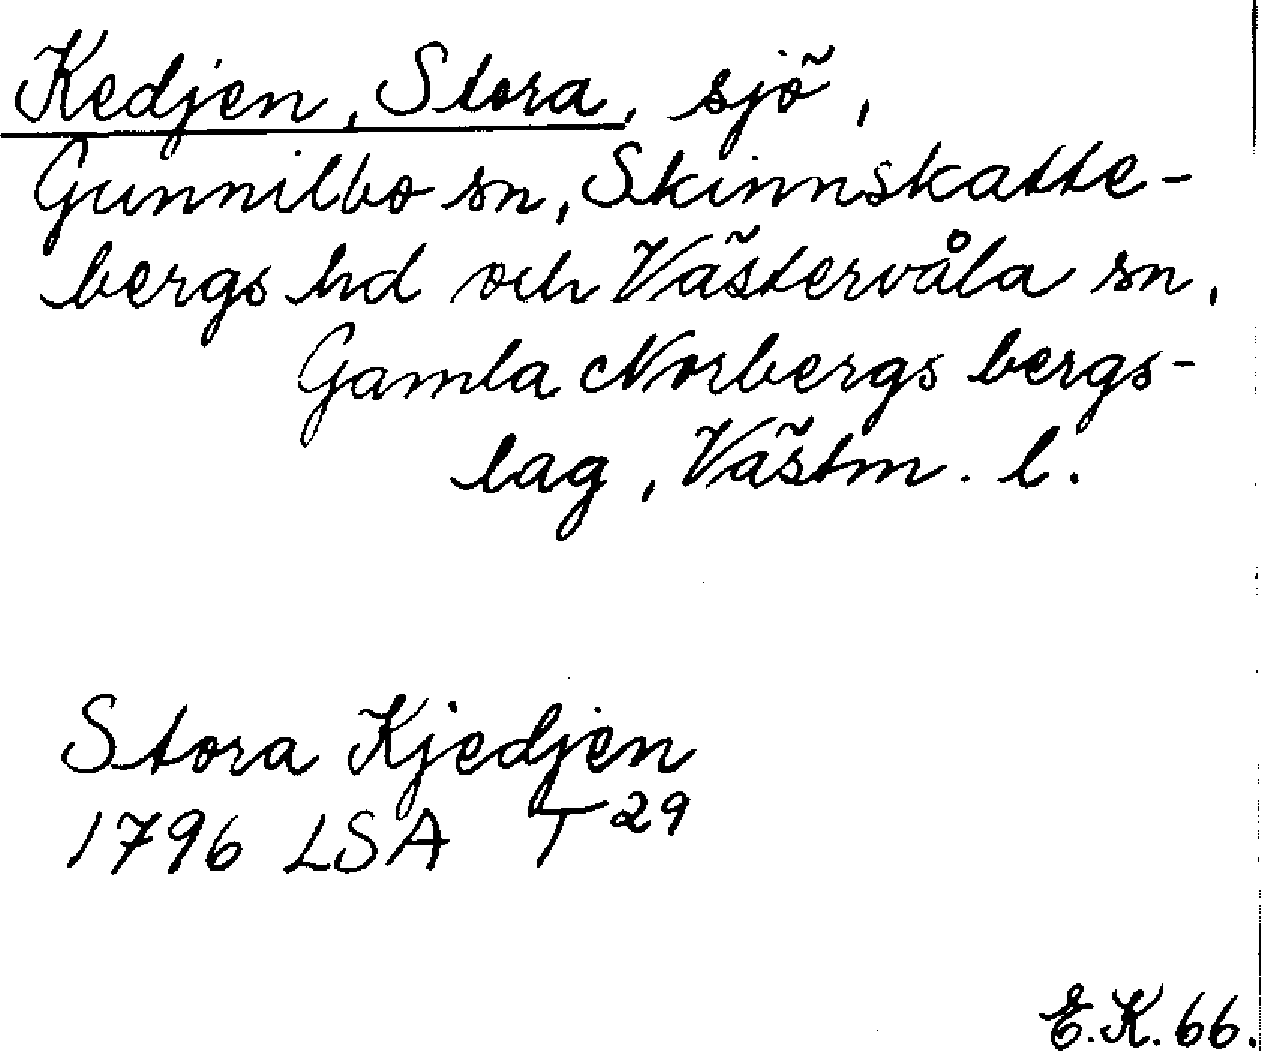 Kedjen, Stora, sjö,
Gunnilbo sn, Skinnskatte-
bergs hd och Västervåla sn,
Gamla Norbergs bergs-
lag, Västm. l.
Stora Kjedjen
1796 LSA T 29
E.K. 66.